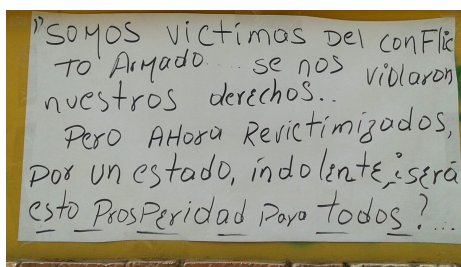 "SOMOS VICTIMAS DEL CONFLIC
TO ARMADO.... SE NOS VIOLARON
NUESTROS DERECHOS..
PERO AHORA REVICTIMIZADOS,
POR UN ESTADO, INDOLENTE, ¿SERÁ
ESTO PROSPERIDAD PARA TODOS?...